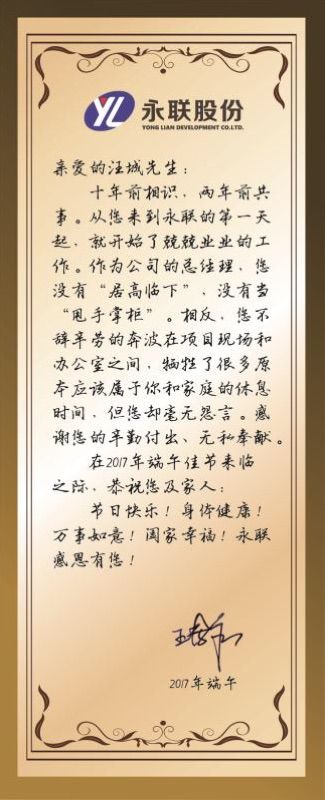 YL 永联股份
YONG LIAN DEVELOPMENT CO.LTD.
亲爱的汪城先生：
十年前相识，两年前共
事。从您来到永联的第一天
起，就开始了兢兢业业的工
作。作为公司的总经理，您
没有“居高临下”，没有当
“甩手掌柜”。相反，您不
辞辛劳的奔波在项目现场和
办公室之间，牺牲了很多原
本应该属于你和家庭的休息
时间，但您却毫无怨言。感
谢您的辛勤付出、无私奉献。
在2017年端午佳节来临
之际，恭祝您及家人：
节日快乐！身体健康！
万事如意！阖家幸福！永联
感恩有您！
2017年端午